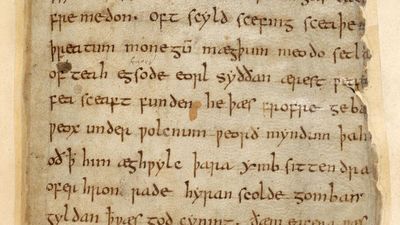 fremedon. oft scyld scefing sceaþe
þreatum monegū mægþum meodo setla
ofteah egsode eorl syððan ærest ƿear
fea sceaft funden he þæs frofre geba
ƿeox under ƿolcnum ƿeorð myndum þah
oð ꝥ him æghƿylc þara ymb sittendra
ofer hron rade hyran scolde gomban
gyldan ꝥ ƿæs god cyning. ðæm eafera ƿæs